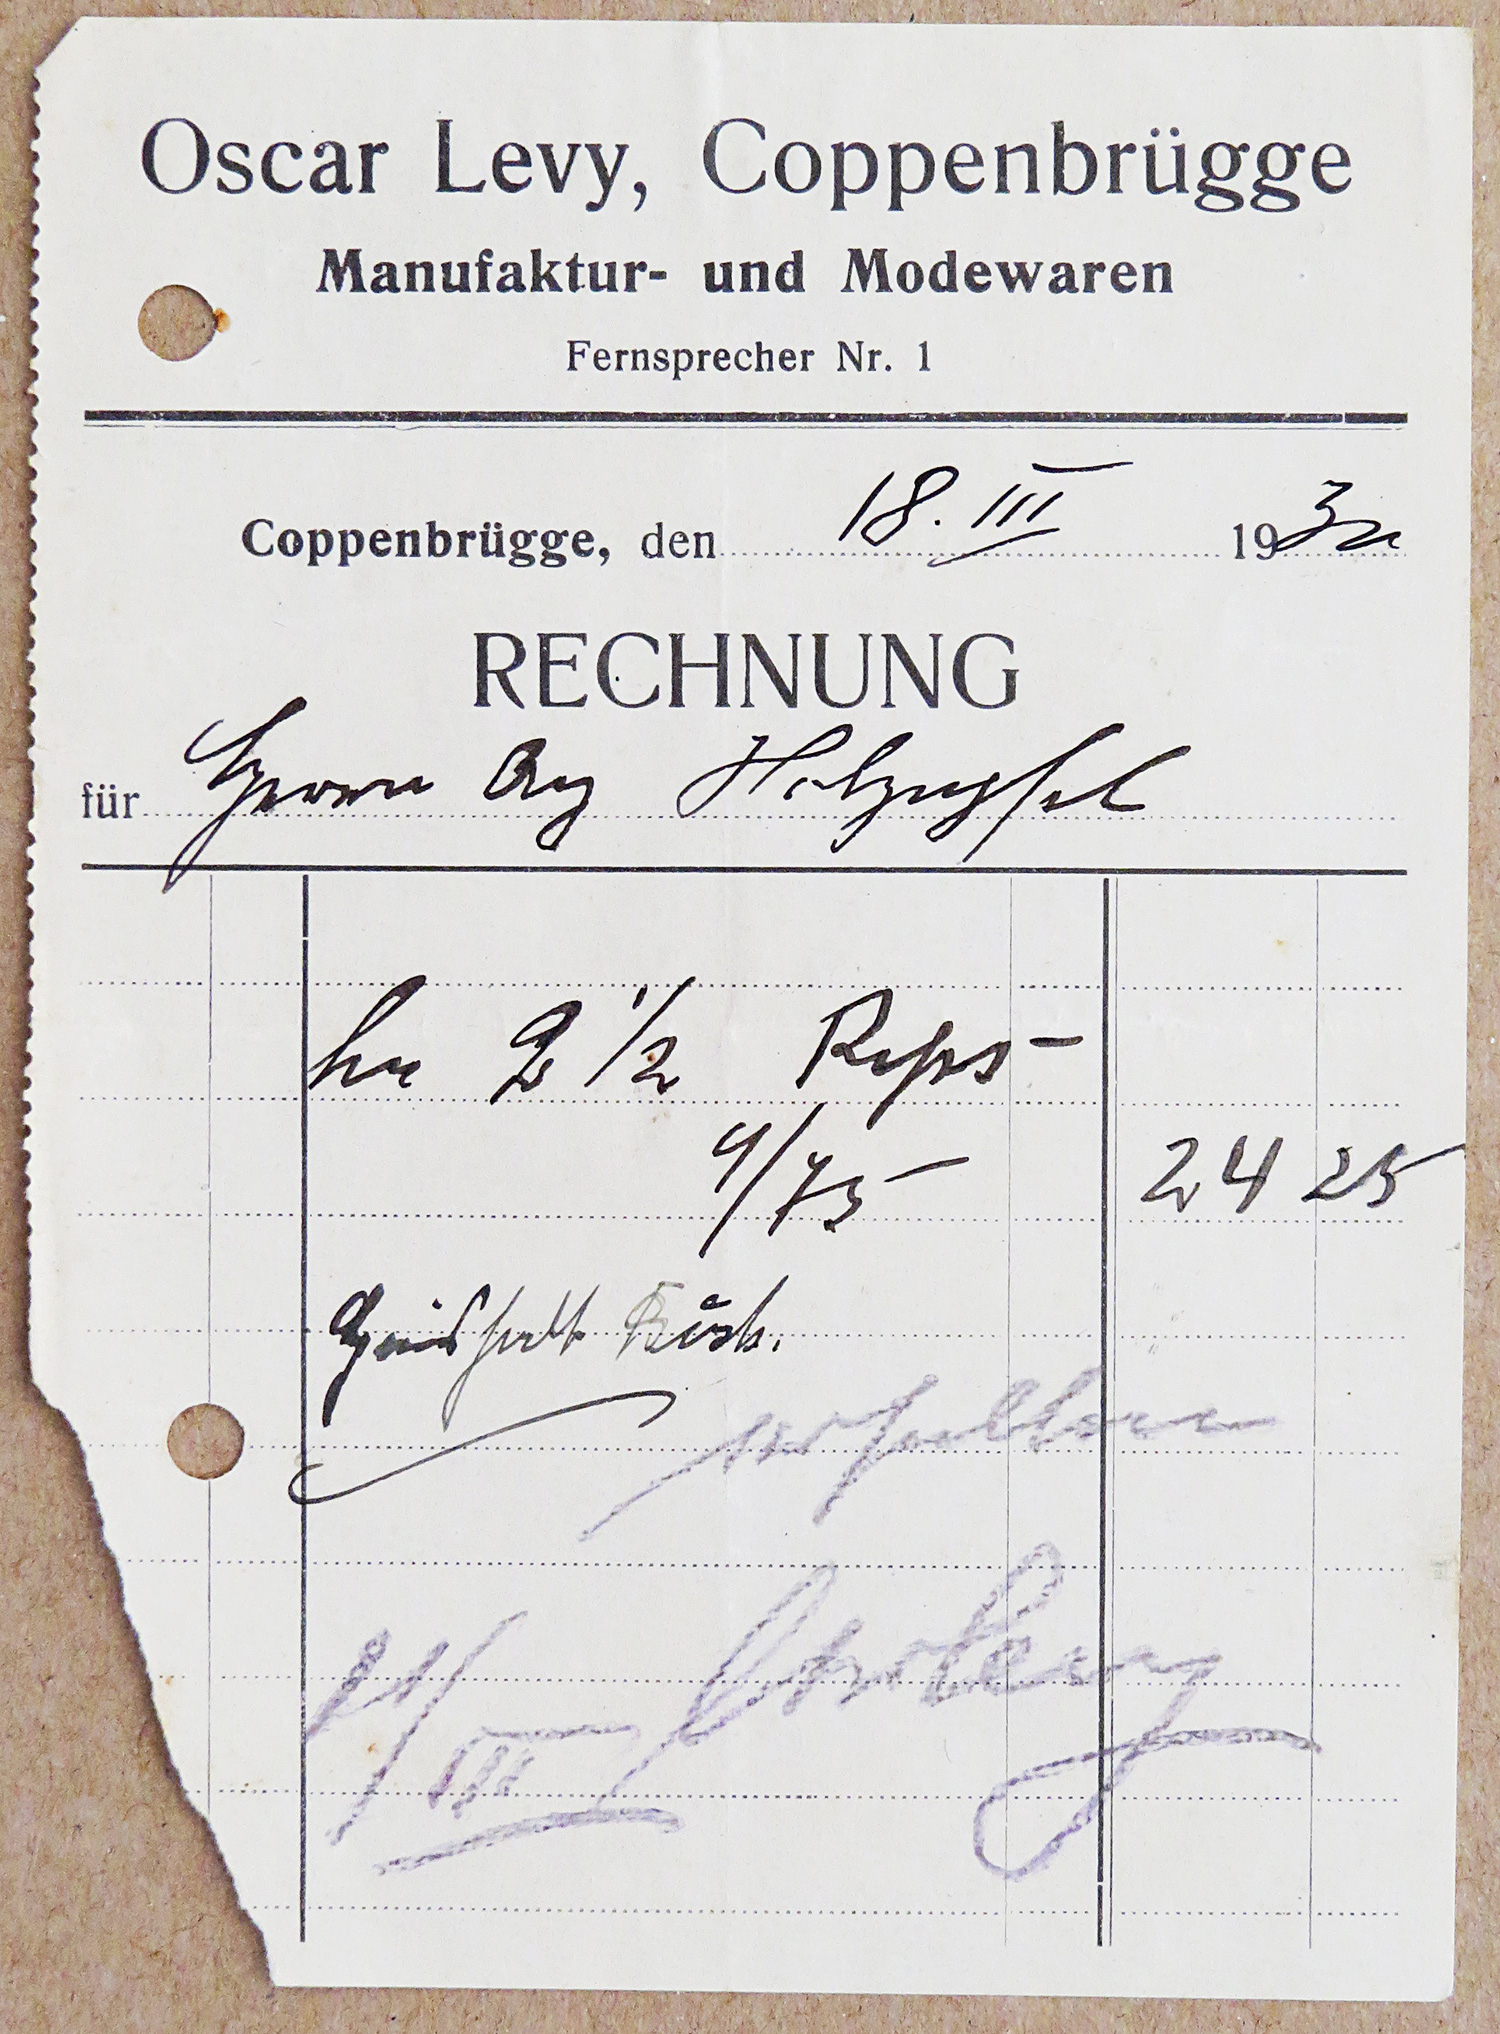 Oscar Levy, Coppenbrügge
Manufaktur- und Modewaren
Fernsprecher Nr. 1
Coppenbrügge, den 18. III 1932
RECHNUNG
für Herrn Aug Holzapfel
2 1/2 Reps
9/75 24 25
erhalten